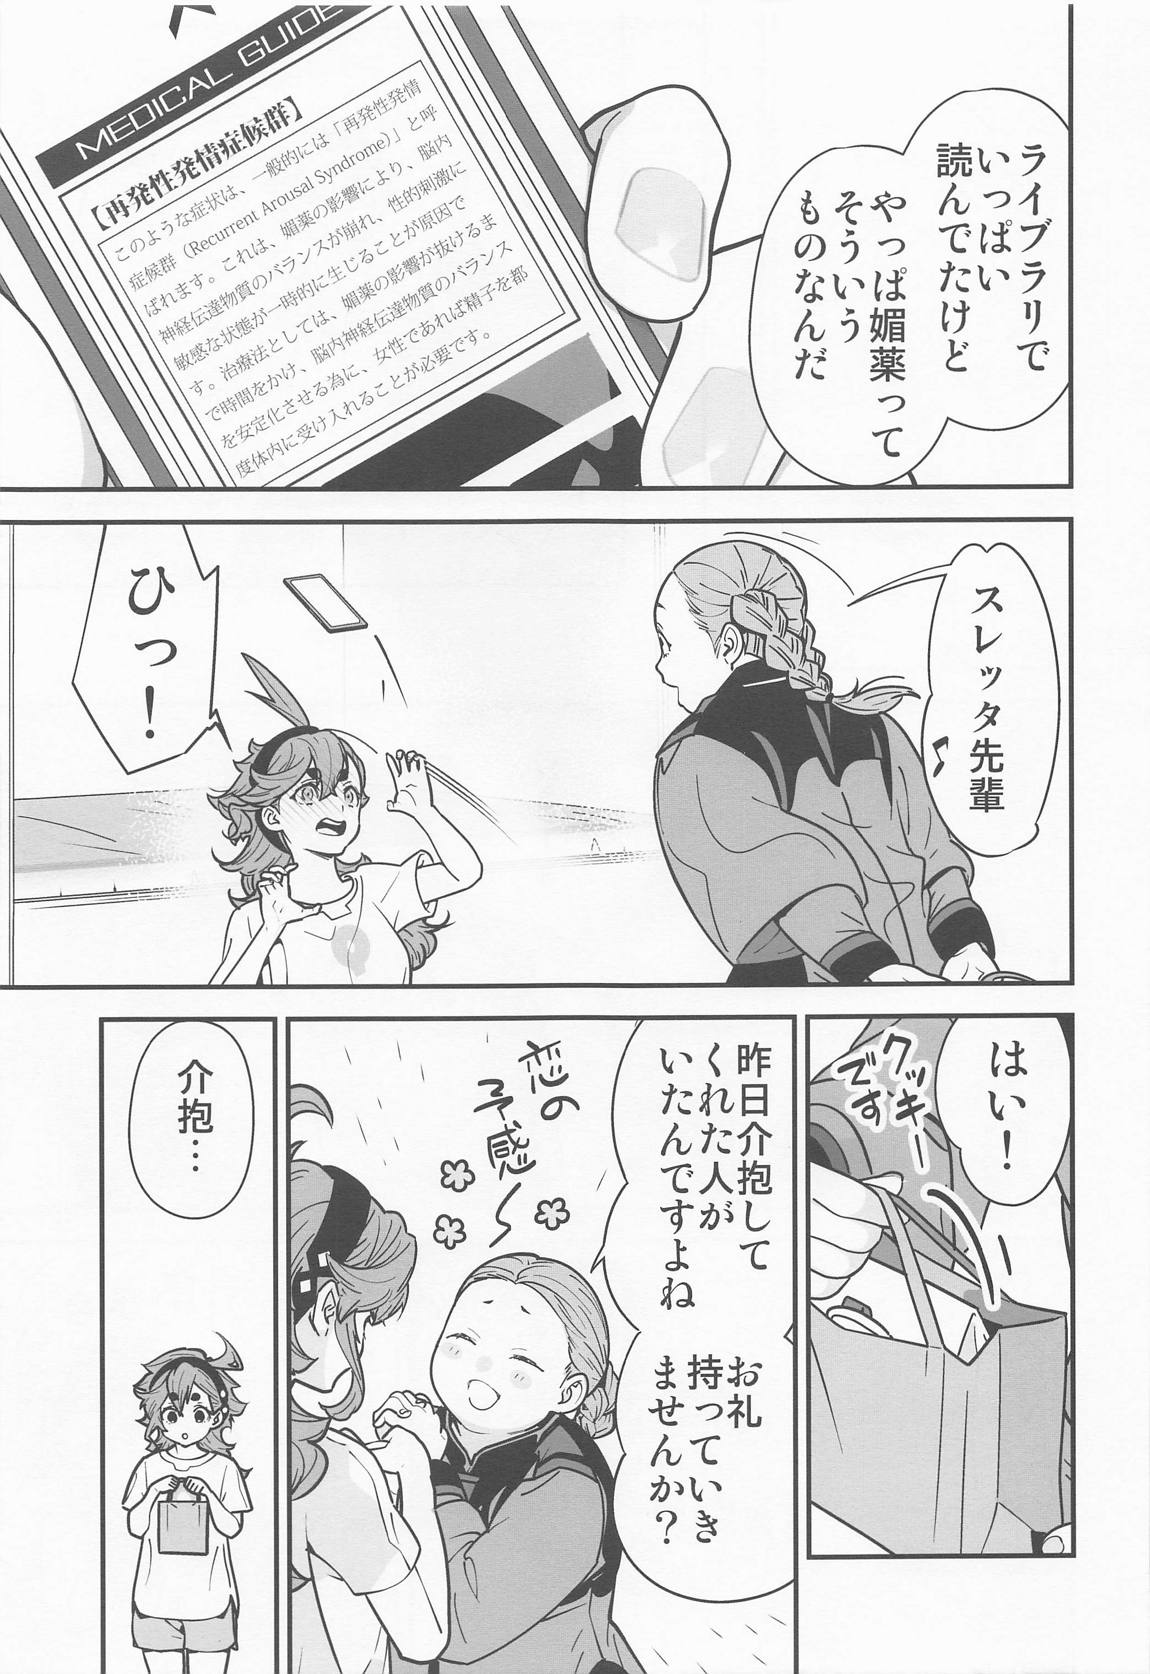 ライブラリで
いっぱい
読んでたけど
やっぱ媚薬って
そういう
ものなんだ
MEDICAL GUIDE
【再発性発情症候群】
このような症状は、一般的には「再発性発情
症候群（Recurrent Arousal Syndrome）」と呼
ばれます。これは、媚薬の影響により、脳内
神経伝達物質のバランスが崩れ、性的刺激に
敏感な状態が一時的に生じることが原因で
す。治療法としては、媚薬の影響が抜けるま
で時間をかけ、脳内神経伝達物質のバランス
を安定化させる為に、女性であれば精子を都
度体内に受け入れることが必要です。
スレッタ先輩♪
ひっ！
はい！
クッキー
です
昨日介抱して
くれた人が
いたんですよね
お礼
持っていき
ませんか？
恋の
予感～
介抱…